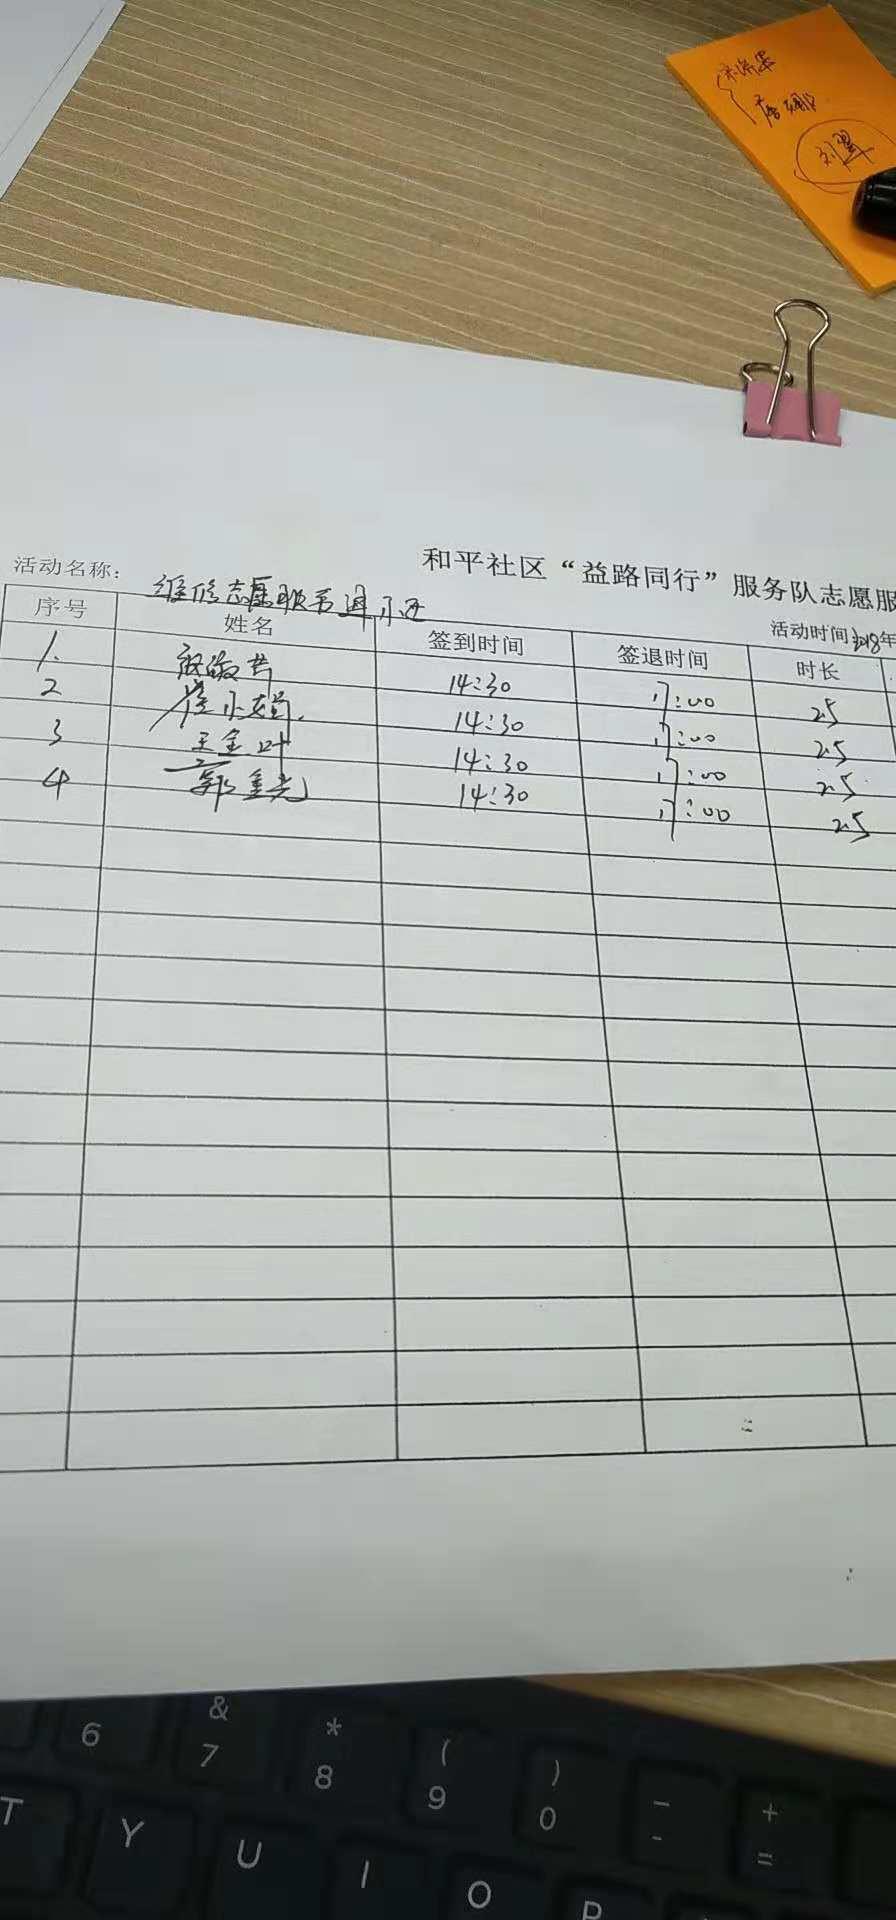 刘翠
和平社区“益路同行”服务队志愿服
活动名称： 维修志愿服务进小区
活动时间 2018年
序号 姓名 签到时间 签退时间 时长
1. 14:30 17:00 2.5
2 14:30 17:00 2.5
3 王金叶 14:30 17:00 2.5
4 郭重光 14:30 17:00 2.5
& * ( ) _ +
6 7 8 9 0 - =
T Y U I O P